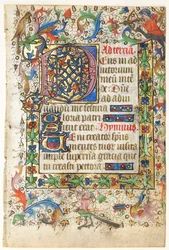 Ad terciā.
Deus in ad
iutorium
meū inte
de. Dñe
ad adiu
uandū me festina
Gloria patri
Sicut erat. Hymnus.
Veni creator spūs
mentes tuor visita
imple superna gratia que
tu creasti pectora